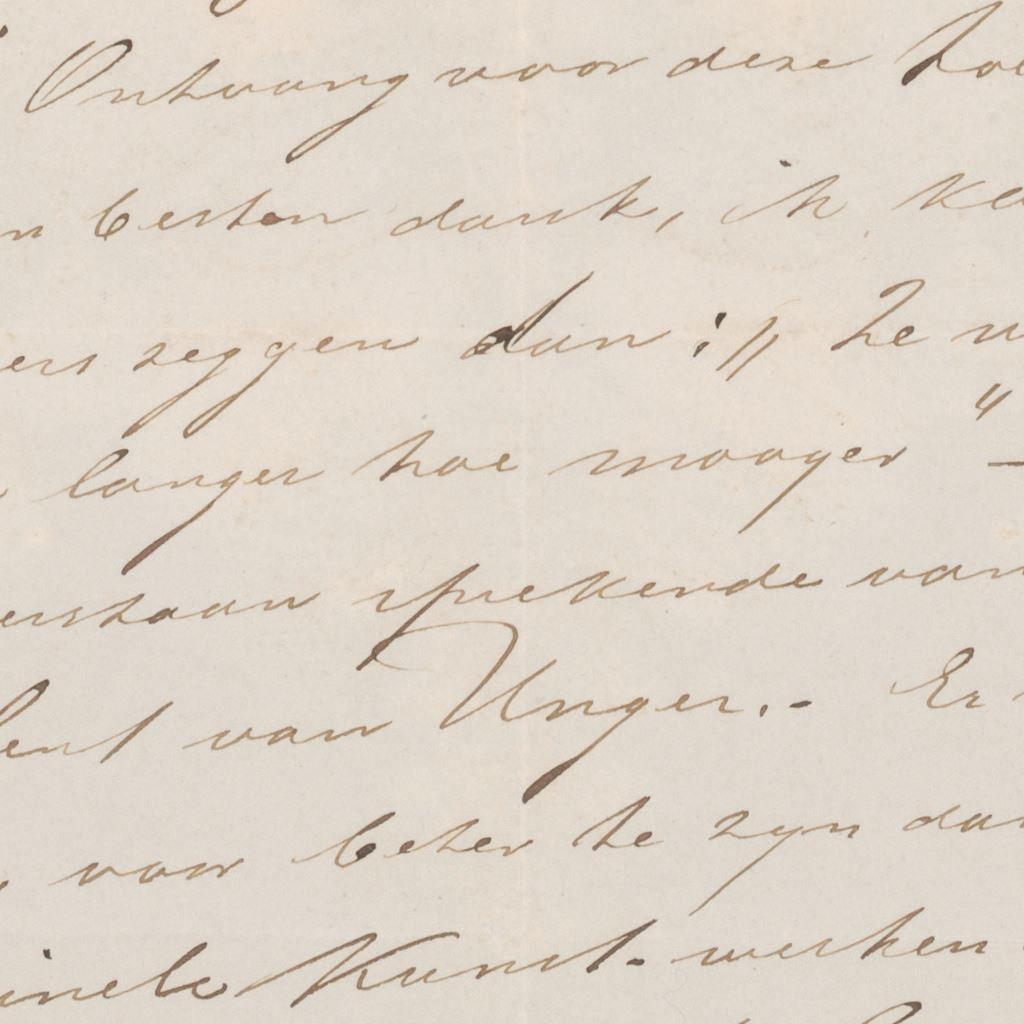 Ontvang voor deze toe
n besten dank, ik ka
ers zeggen dan :„ Ze w
langer hoe mooyer" —
erstaan sprekende van
lent van Unger.- Er
voor beter te zyn dan
inele Kunst-werken